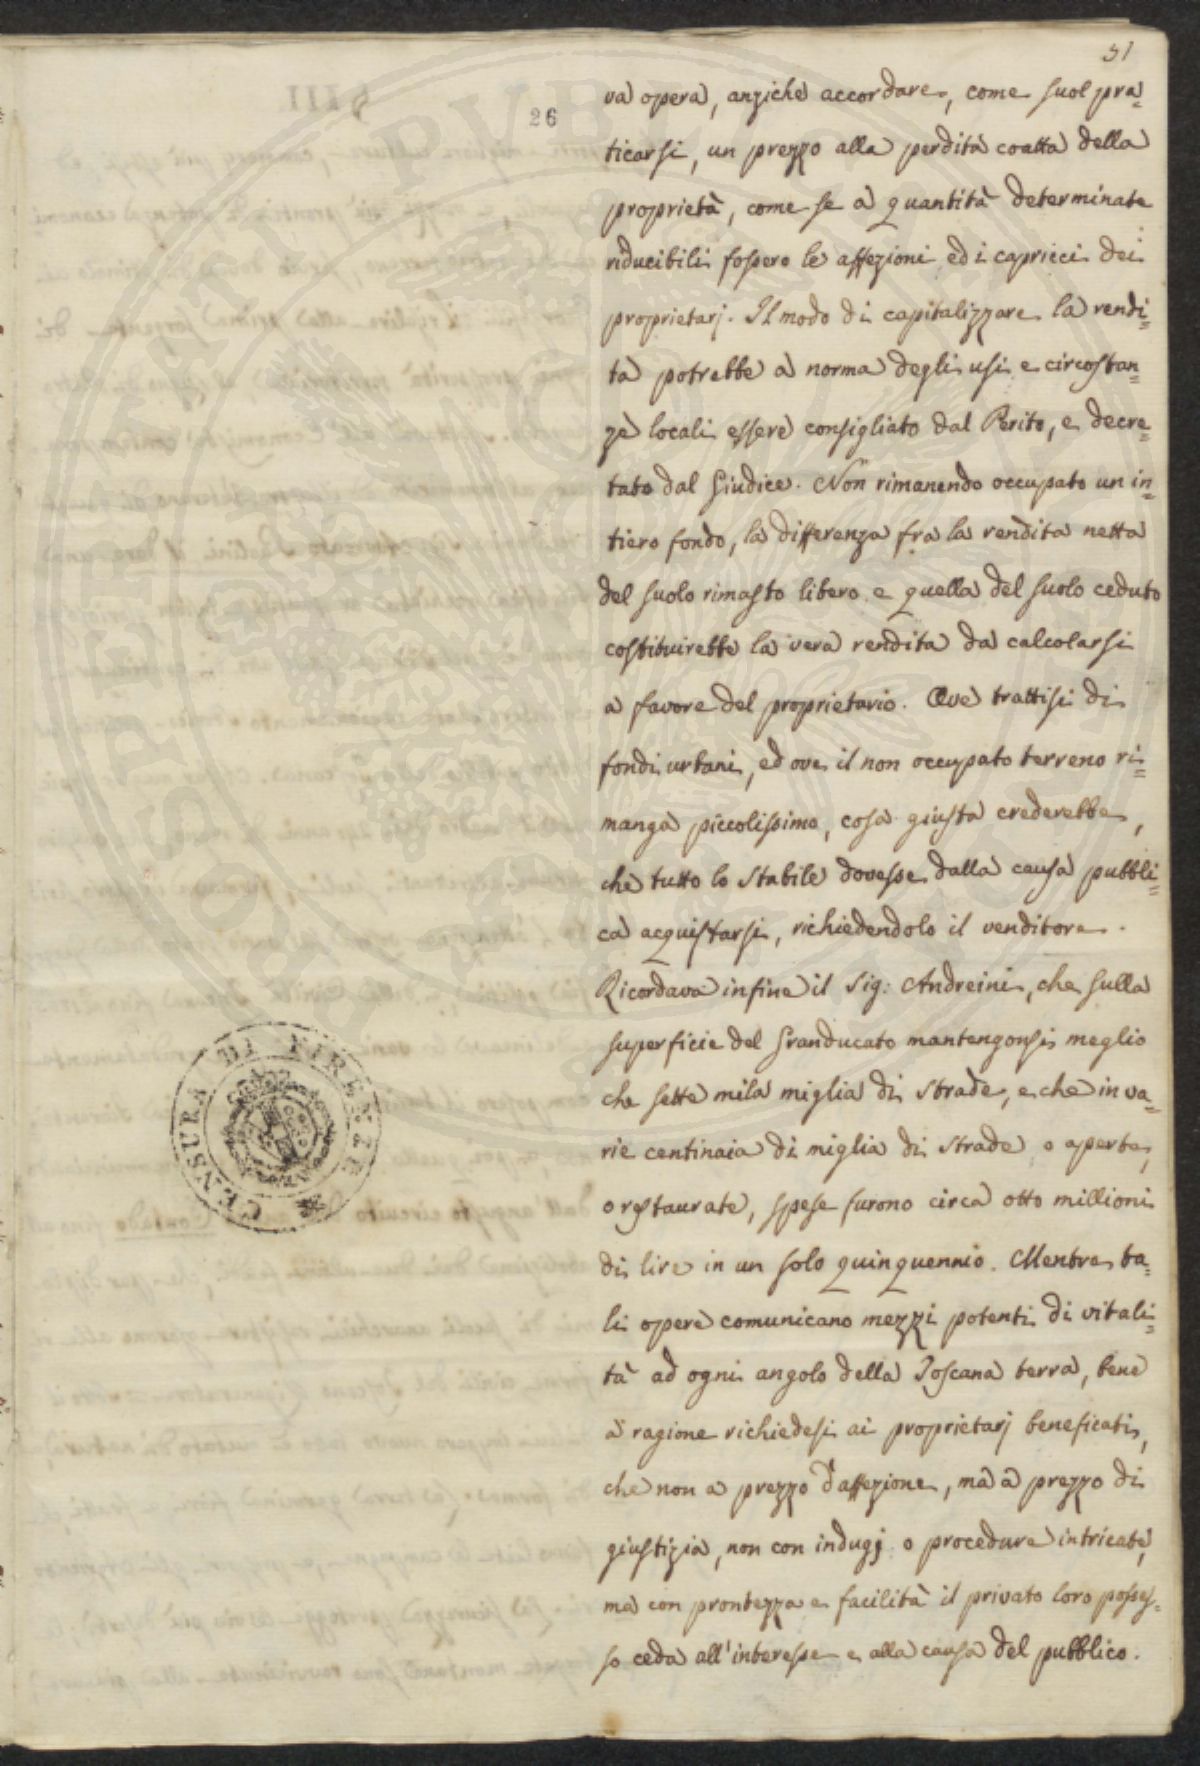 51
26
va opera, anziche accordare, come suol pra=
ticarsi, un prezzo alla perdita coatta della
proprietà, come se a quantità determinate
riducibili fossero le affezioni ed i capricci dei
proprietarj. Il modo di capitalizzare la rendi=
ta potrebbe a norma degli usi e circostan=
ze locali essere consigliato dal Perito, e decre=
tato dal Giudice. Non rimanendo occupato un in=
tiero fondo, la differenza fra la rendita netta
del suolo rimasto libero e quella del suolo ceduto
costituirebbe la vera rendita da calcolarsi
a favore del proprietario. Ove trattisi di
fondi urbani, ed ove il non occupato terreno ri=
manga piccolissimo, cosa giusta crederebbe,
che tutto lo stabile dovesse dalla causa pubbli=
ca acquistarsi, richiedendolo il venditore.
Ricordava infine il Sig: Andreini, che sulla
superficie del Granducato mantengonsi meglio
che sette mila miglia di strade, e che in va=
rie centinaia di miglia di strade o aperte,
o restaurate, spese furono circa otto millioni
di lire in un solo quinquennio. Mentre ta=
li opere comunicano mezzi potenti di vitali=
tà ad ogni angolo della Toscana terra, bene
a ragione richiedesi ai proprietarj beneficati,
che non a prezzo d'affezione, ma a prezzo di
giustizia, non con indugj o procedure intricate,
ma con prontezza e facilità il privato loro posses=
so ceda all'interesse e alla causa del pubblico.
CENSURA DI FIRENZE